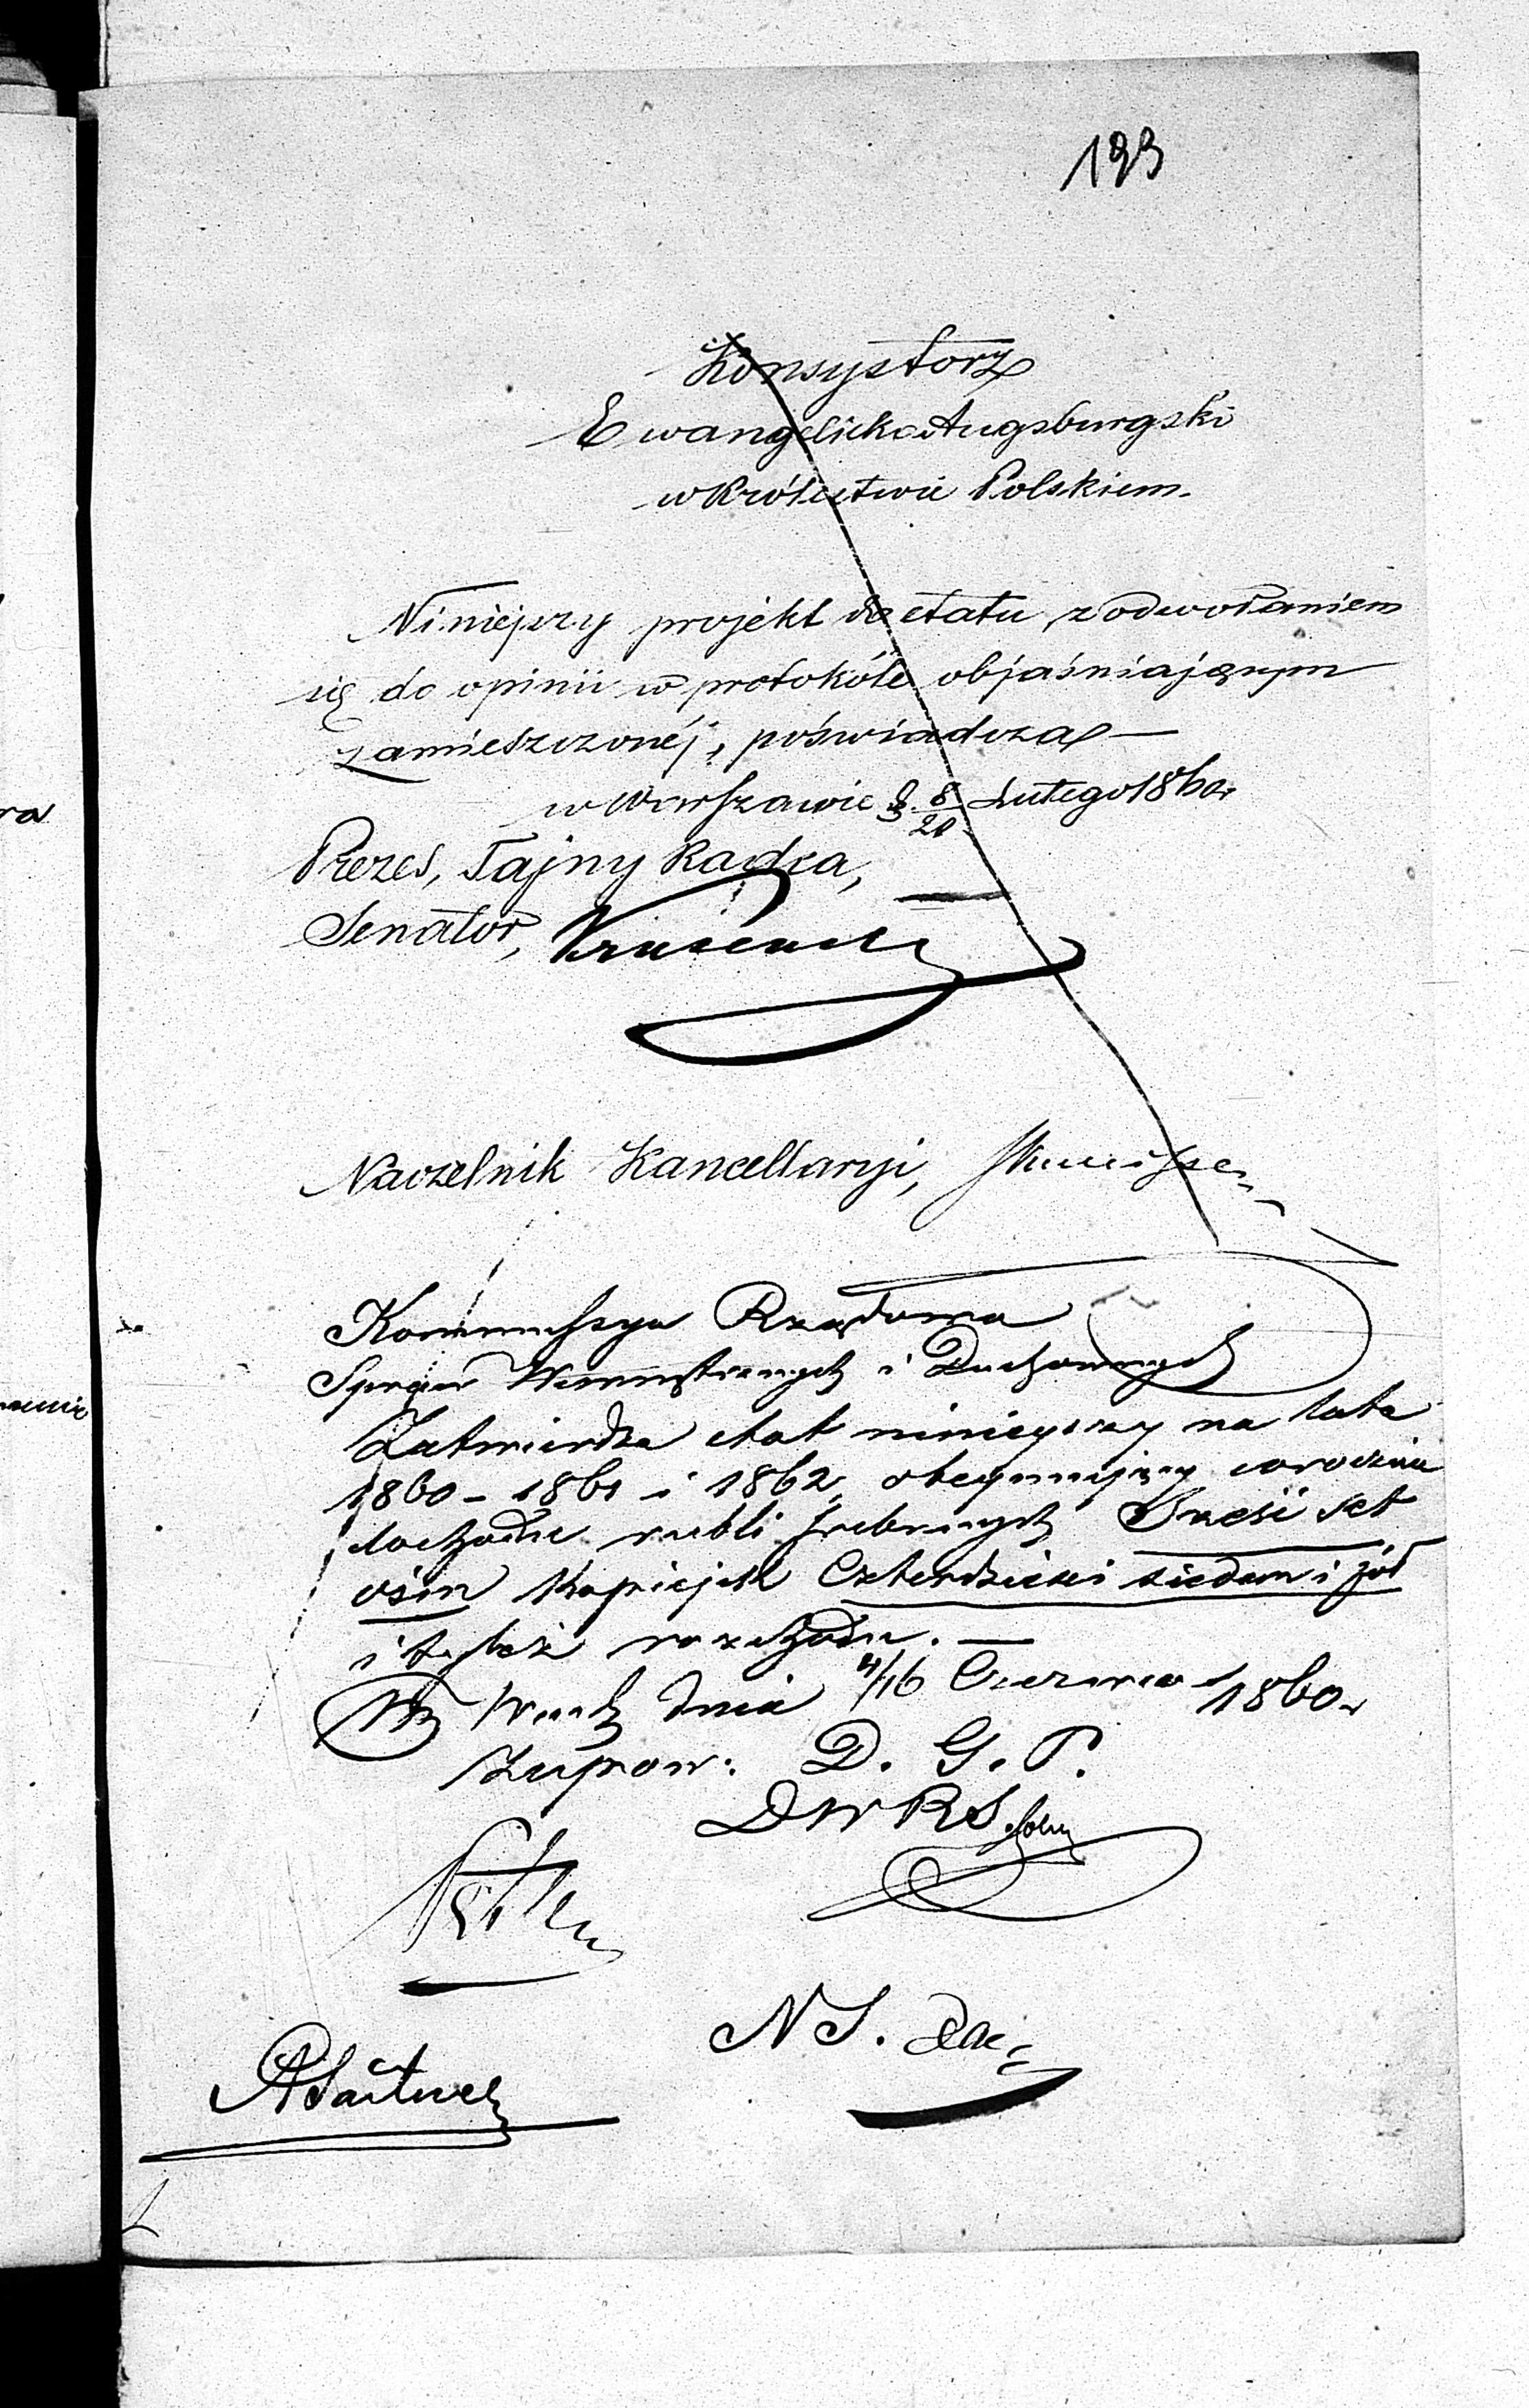 193
Konsystorz
Ewangelicko Augsburgski
w Królestwie Polskiem.
Niniejszy projekt do etatu, z odwołaniem
się do opinii w protokóle objaśniającym
zamieszczonéj, poświadcza
w Warszawie d. 8/20 Lutego 1860 r
Prezes, Tajny Radca,
Senator,
Naczelnik Kancellaryi,
Kommissya Rządowa
Spraw Wewnętrznych i Duchownych
Zatwierdza etat niniejszy na lata
1860 - 1861 i 1862, obejmujący corocznie
dochodu rubli srebrnych Sześć set
ośm kopiejek Czterdzieści siedem i pół
i tyleż rozchodu.
w Warsz dnia 4/16 Czerwca 1860 r
Z upow: D. G. P.
D W R S.
N S.